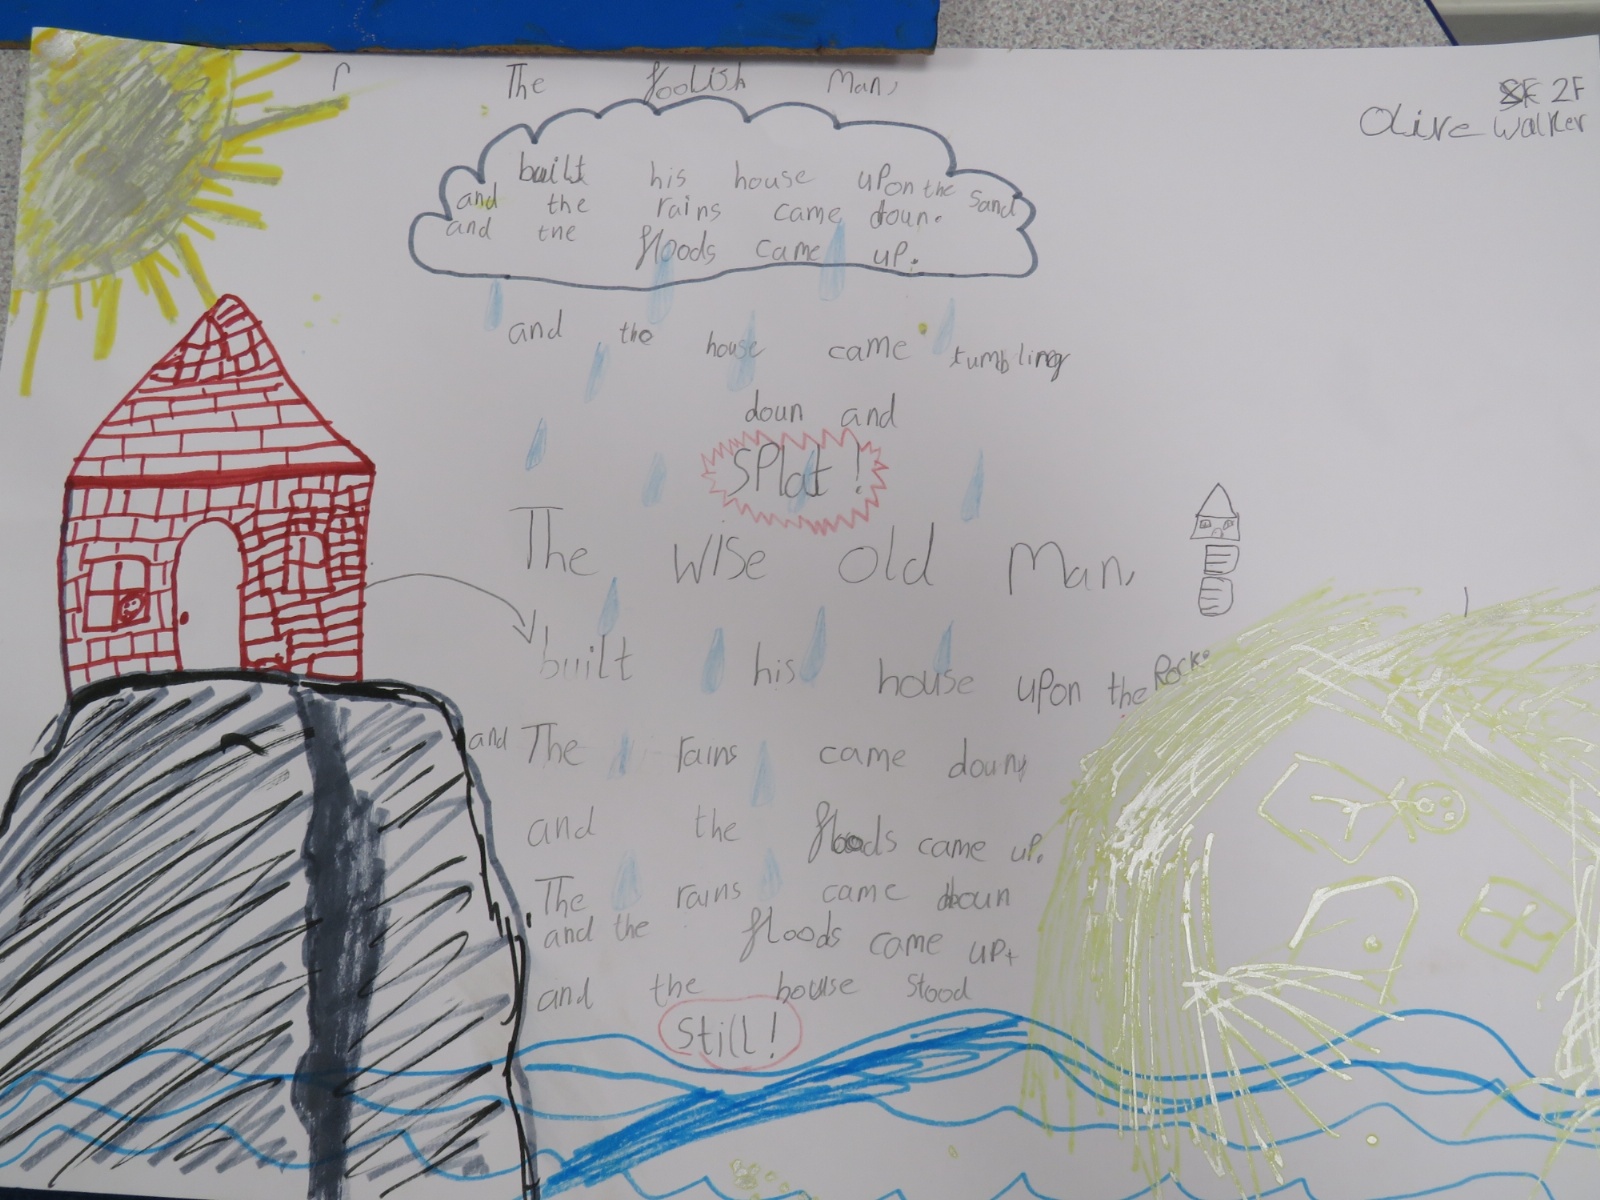 The foolish Man,
2F
Olive Walker
built his house upon the sand
and the rains came doun.
and the floods came up.
and the house came tumbling
doun and
SPlat!
The wise old Man,
built his house upon the Rock.
and The rains came doun,
and the floods came up.
The rains came doun
and the floods came up+
and the house stood
Still!